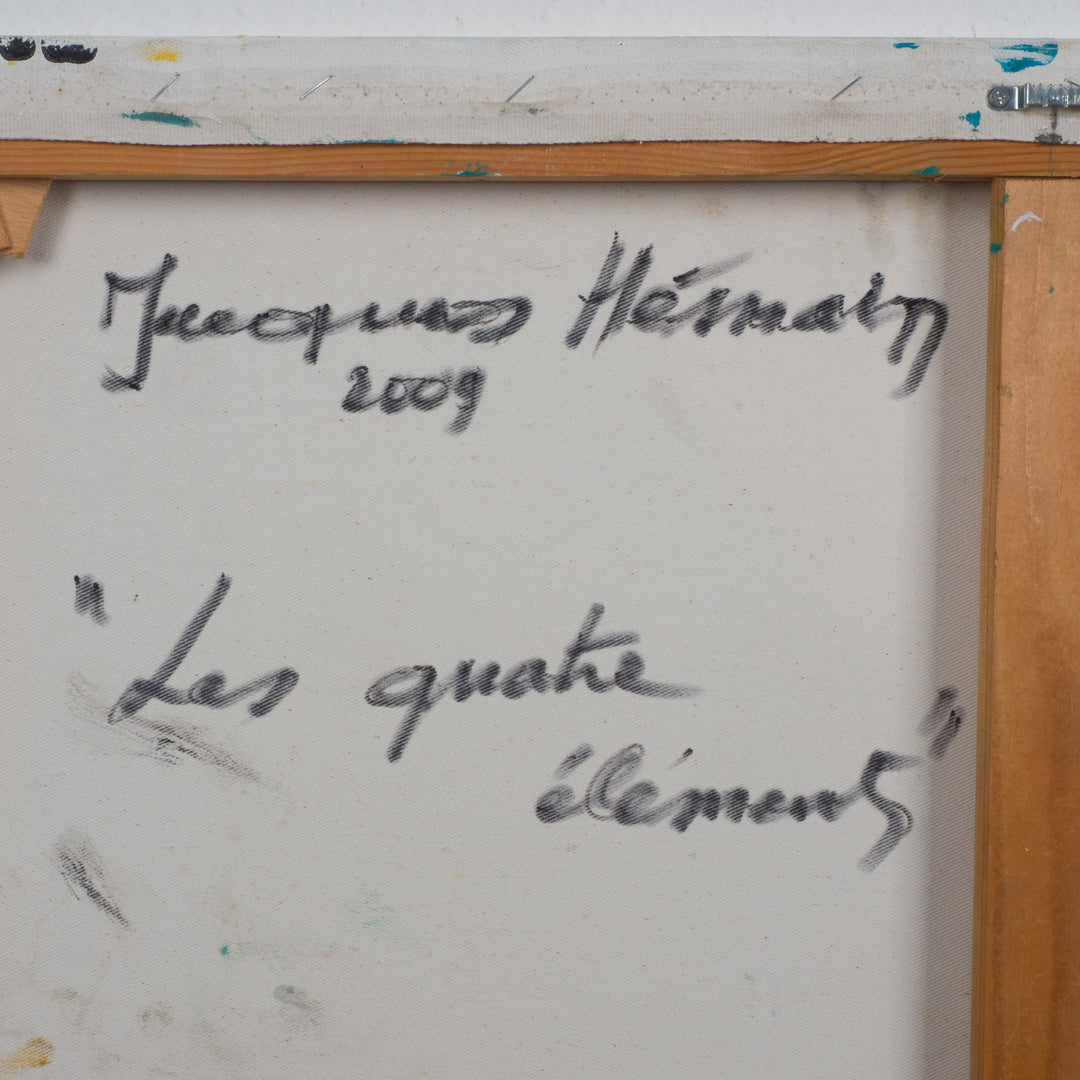 Jacques Hésmain
2009
"Les quatre
éléments"